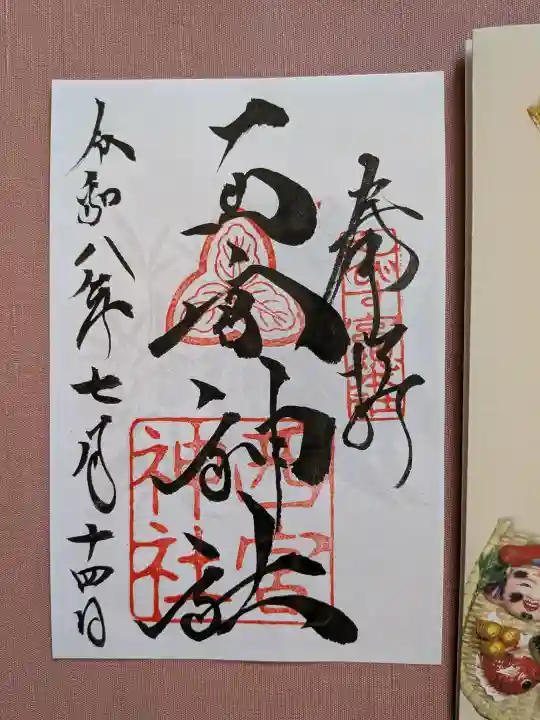 奉拝
西宮神社
西宮
神社
令和八年七月十四日